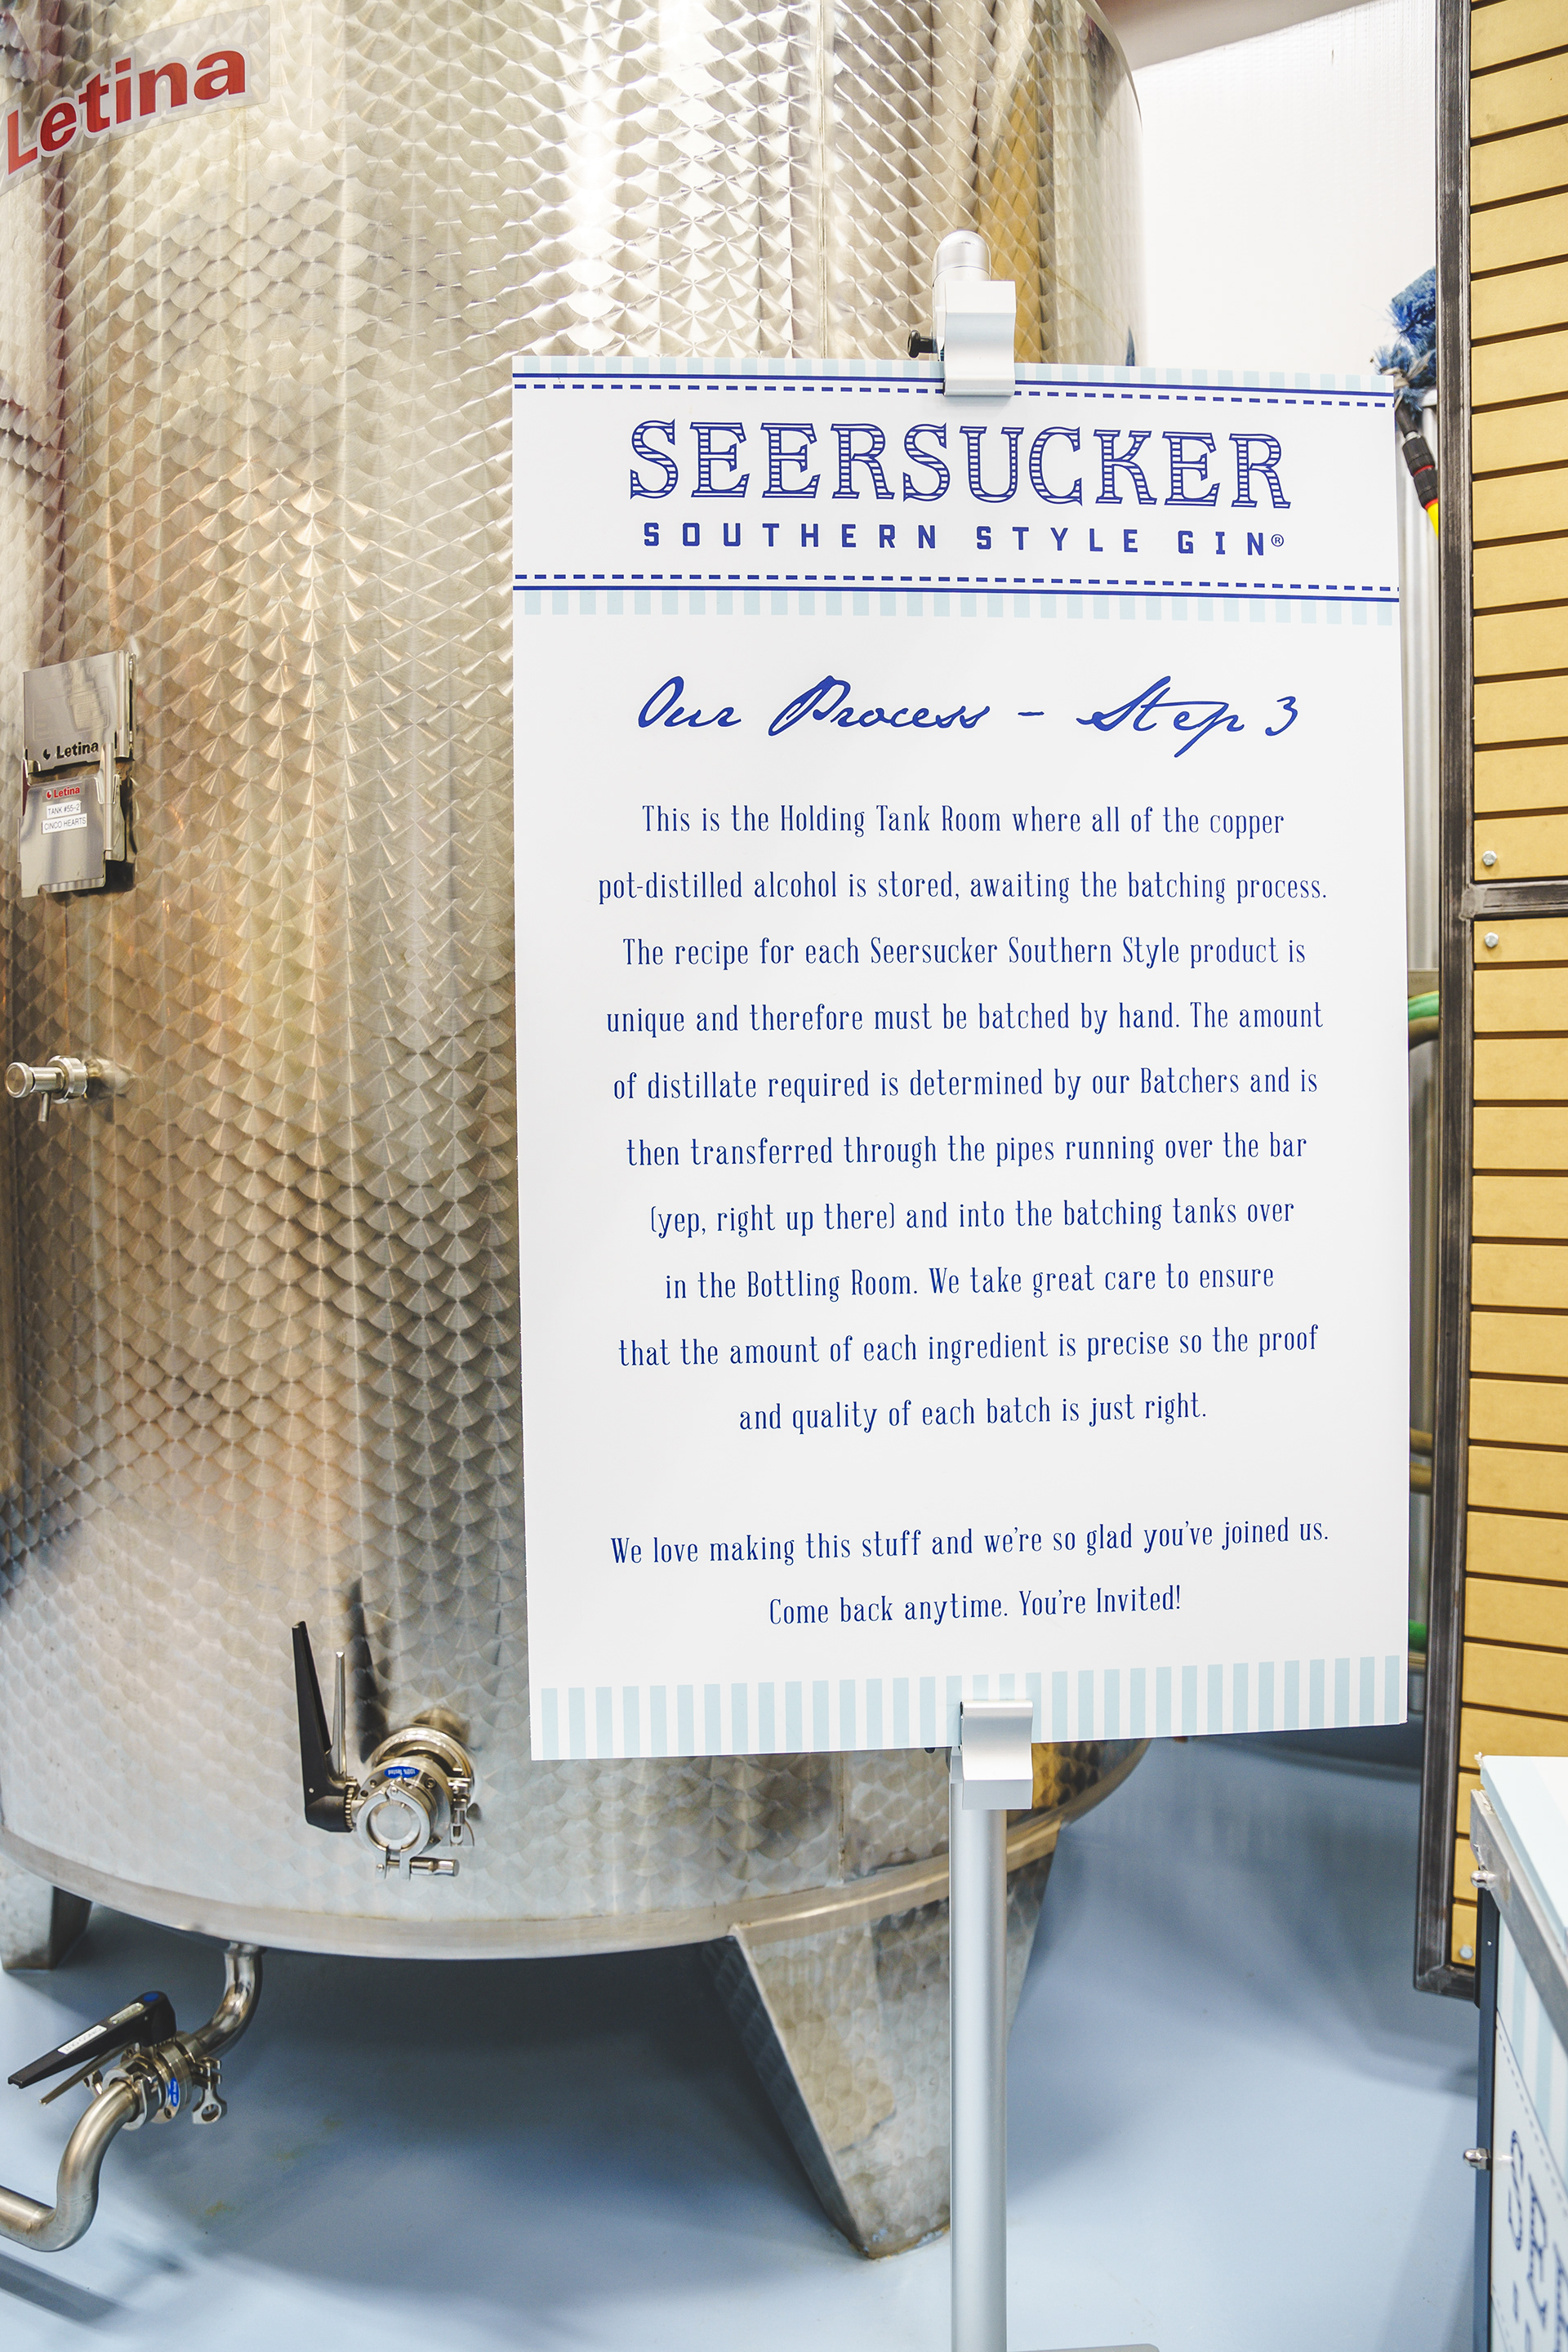 Letina
Letina
Letina
TANK #55-2
CINCO HEARTS
SEERSUCKER
SOUTHERN STYLE GIN®
Our Process - Step 3
This is the Holding Tank Room where all of the copper
pot-distilled alcohol is stored, awaiting the batching process.
The recipe for each Seersucker Southern Style product is
unique and therefore must be batched by hand. The amount
of distillate required is determined by our Batchers and is
then transferred through the pipes running over the bar
(yep, right up there) and into the batching tanks over
in the Bottling Room. We take great care to ensure
that the amount of each ingredient is precise so the proof
and quality of each batch is just right.
We love making this stuff and we're so glad you've joined us.
Come back anytime. You're Invited!